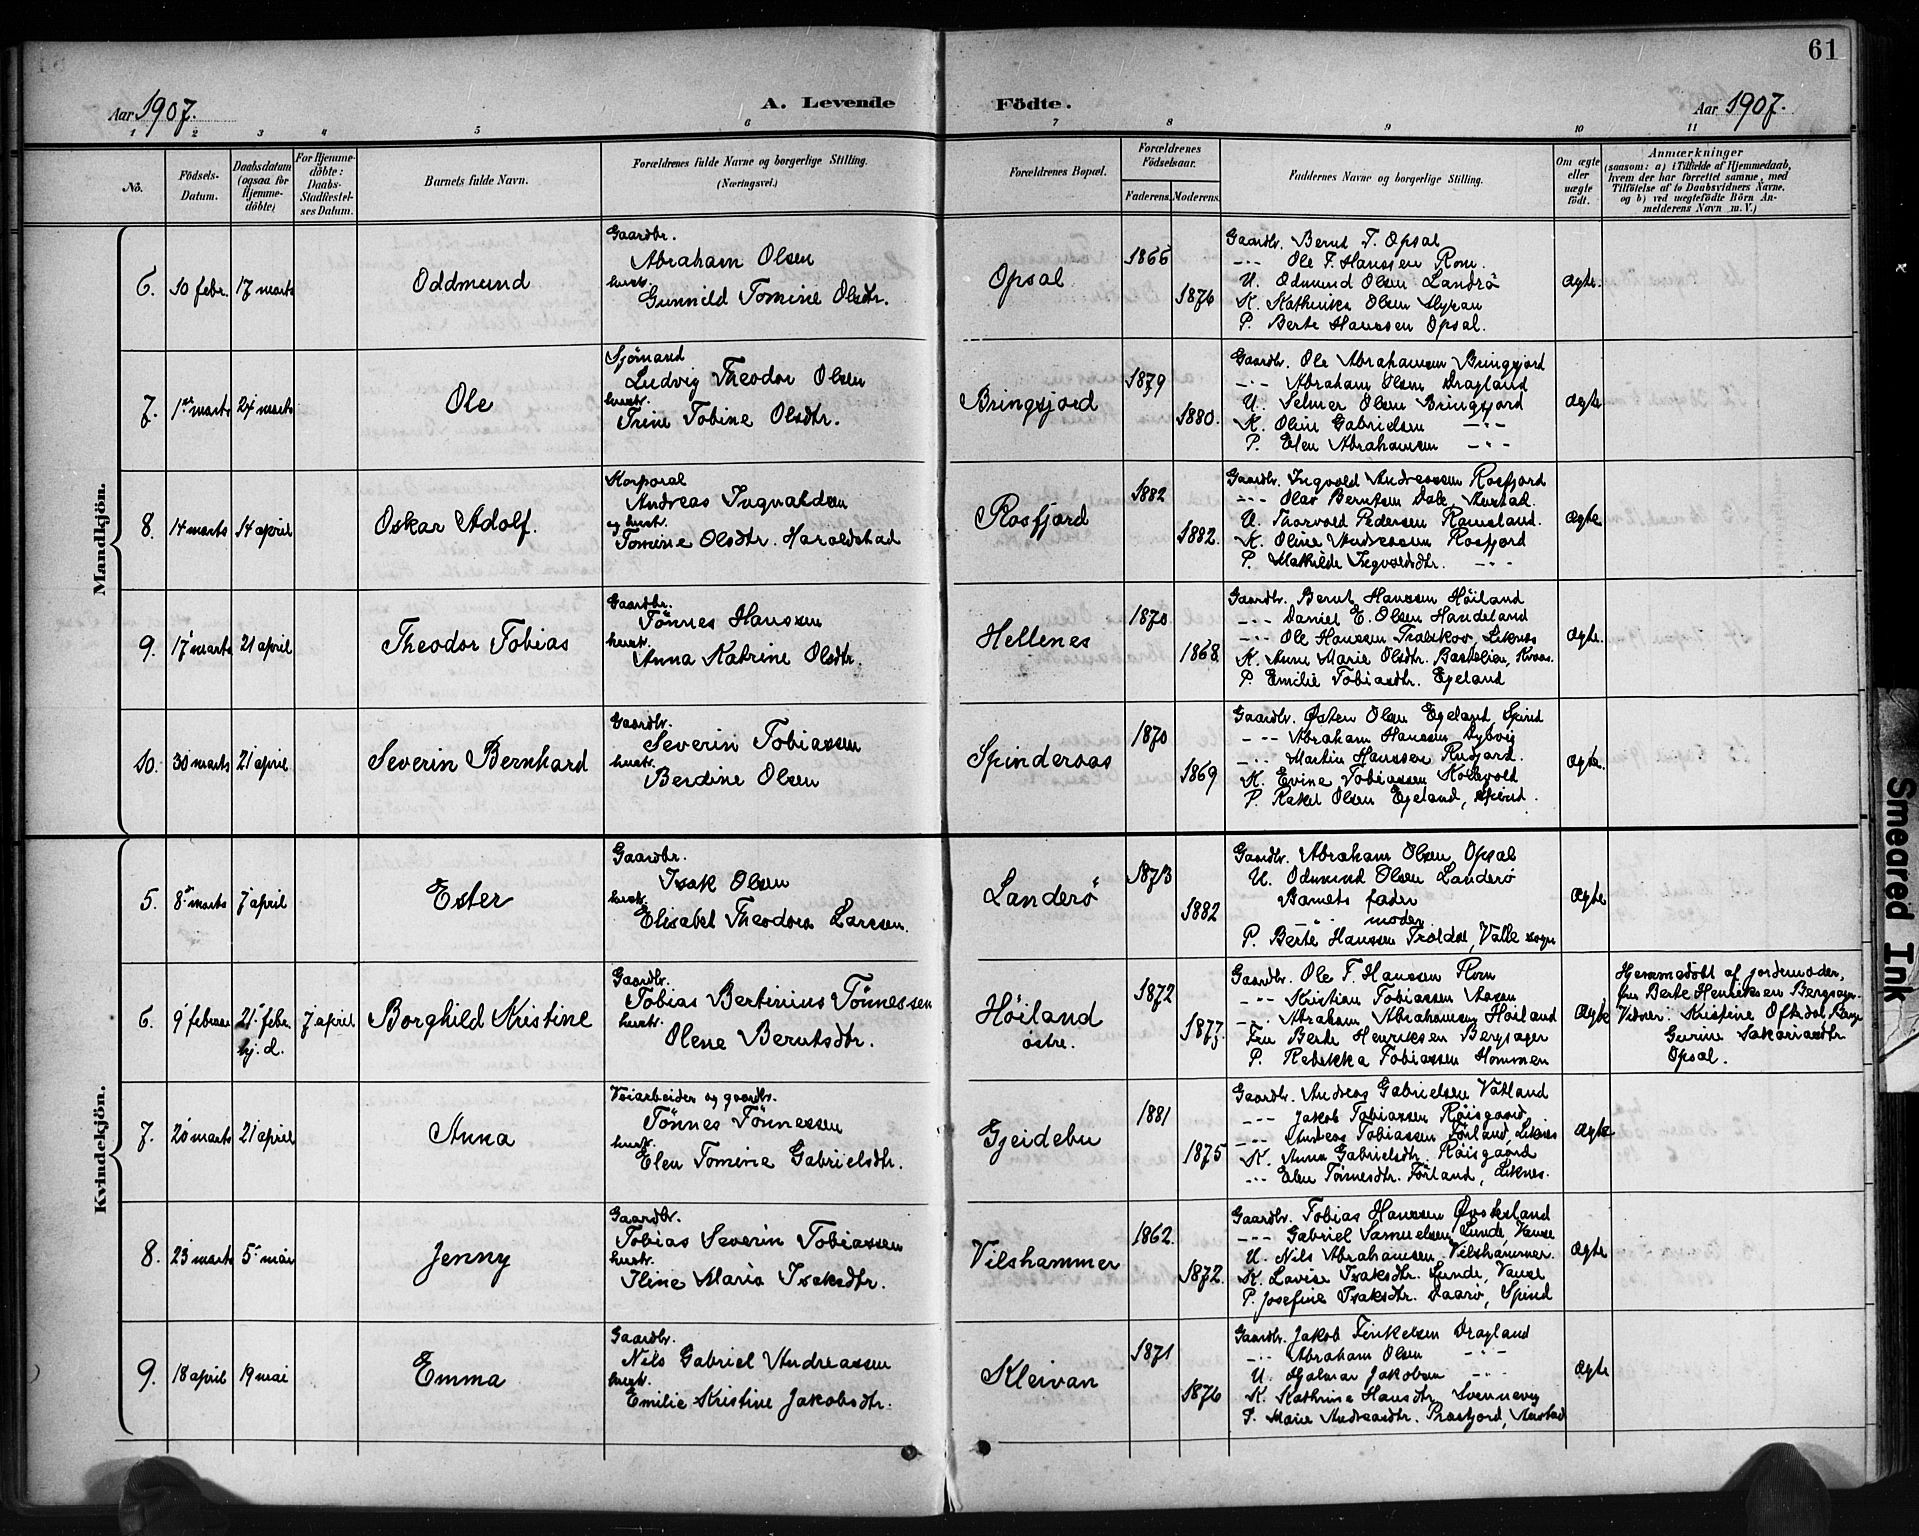 61
Aar 1907.
A. Levende Födte.
Aar 1907.
1 2 3 4 5 6 7 8 9 10 11
No.
Födsels-Datum.
Daabsdatum (ogsaa for Hjemme-döbte)
For Hjemme-döbte: Daabs-Stadfestel-ses Datum.
Barnets fulde Navn.
Forældrenes fulde Navne og borgerlige Stilling. (Næringsvei.)
Forældrenes Bopæl.
Forældrenes Födselsaar.
Faderens. Moderens.
Faddernes Navne og borgerlige Stilling.
Om ægte eller uægte födt.
Anmærkninger
(saasom: a) i Tilfælde af Hjemmedaab,
hvem der har forrettet samme, med
Tilföielse af to Daabsvidners Navne.
og b) ved uegtefödte Börn An-
melderens Navn m. V.)
Mandkjön.
6. 10 febr. 17 marts
Oddmund
Gaardbr.
Abraham Olsen
hustr.
Gunnild Tomine Olsdtr.
Opsal
1866
1876
Gaardbr. Bernt T. Opsal
—"— Ole F. Hanssen Rom.
U. Odmund Olsen Landrö
K. Kathinka Olsen
P. Berte Hanssen Opsal.
Ægte.
7. 1ste marts 24 marts
Ole
Sjömand
Ludvig Theodor Olsen
hustr.
Trine Tobine Olsdtr.
Bringsjord
1879
1880.
Gaardbr. Ole Abrahamsen Bringsjord
—"— Abraham Olsen Dragland
U. Selmer Olsen Bringsjord
K. Oline Gabrielsen —"—
P. Elen Abrahamsen —"—
Ægte
8. 14 marts 14 april
Oskar Adolf.
Korporal
Andreas Ingvaldsen
og hustr.
Tomine Olsdtr. Haroldstad
Rosfjord
1882
1882.
Gaardbr. Ingvold Andreassen Rosfjord
—"— Olav Berntsen Dale, Austad.
U. Thorvold Pedersen Ramsland.
K. Oline Andreassen Rosfjord
P. Mathilde Ingvoldsdtr. —"—
Ægte
9. 17 marts 21 april
Theodor Tobias
Gaardbr.
Tönnes Hanssen
hustr.
Anna Katrine Olsdtr.
Hellenes
1870
1868.
Gaardbr. Bernt Hanssen Höiland
—"— Daniel E. Olsen Handeland
—"— Ole Hanssen Liknes
K. Anne Marie Olsdtr. Kvaas.
P. Emilie Tobiasdtr. Egeland
Ægte.
10. 30 marts 21 april
Severin Bernhard
Gaardbr.
Severin Tobiassen
hustr.
Berdine Olsen
Spinderaas
1870
1869
Gaardbr. Østen Olsen Egeland, Spind
—"— Abraham Hanssen Dybvig
—"— Martin Hanssen
K. Evine Tobiassen Kollevold
P. Rakel Olsen Egeland, Spind.
Ægte.
Kvindekjön.
5. 8de marts 7 april
Ester
Gaardbr.
Isak Olsen
hustr.
Elisabet Theodora Larssen.
Landerö
1873
1882
Gaardbr. Abraham Olsen Opsal
U. Odmund Olsen Landerö
Barnets fader
—"— moder
P. Berte Hanssen Troldal, Valle sogn
Ægte
6. 9 februar 21. febr. hj. d. 7 april
Borghild Kristine
Gaardbr.
Tobias Bertinius Tönnessen
hustr.
Olene Berntsdtr.
Höiland
östre.
1872
1877.
Gaardbr. Ole F. Hanssen Rom
—"— Kristian Tobiassen Aasen
—"— Abraham Abrahamsen Höiland
Fru Berte Henriksen Bergsager
P. Rebekka Tobiassen Hommen
Ægte
Hjemmedöbt af jordemoder,
fru Berte Henriksen Bergsager.
Vidner. Kristine Oftedal
Gurine Sakariasdtr.
Opsal.
7. 20 marts 21 april
Anna
Veiarbeider og gaardbr.
Tönnes Tönnessen
hustr.
Elen Tomine Gabrielsdtr.
Gjeidebu
1881
1875
Gaardbr. Andreas Gabrielsen Vatland
—"— Jakob Tobiassen Röisgaard
—"— Andreas Tobiassen Förland, Liknes
K. Anna Gabrielsdtr. Röisgaard
—"— Elen Tönnesdtr. Förland, Liknes.
Ægte
8. 23 marts 5. mai
Jenny
Gaardbr.
Tobias Severin Tobiassen
hustr.
Iline Maria Isaksdtr.
Vilshammer
1862.
1872.
Gaardbr. Tobias Hanssen Øvoksland
—"— Gabriel Samuelsen Lunde, Vanse
U. Nils Abrahamsen Vilshammer.
K. Lovise Isaksdtr. Lunde, Vanse
P. Josefine Isaksdtr. Daarö, Spind
Ægte
9. 18 april 19 mai
Emma
Gaardbr.
Nils Gabriel Andreassen
hustr.
Emilie Kristine Jakobsdtr.
Kleivan
1871
1876
Gaardbr. Jakob Terkelsen Dragland
—"— Abraham Olsen —"—
U. Hjalmar Jakobsen —"—
K. Kathrine Hansdtr. Svennevig
P. Marie Andreasdtr. Rosfjord, Austad
Ægte
Smeared Ink